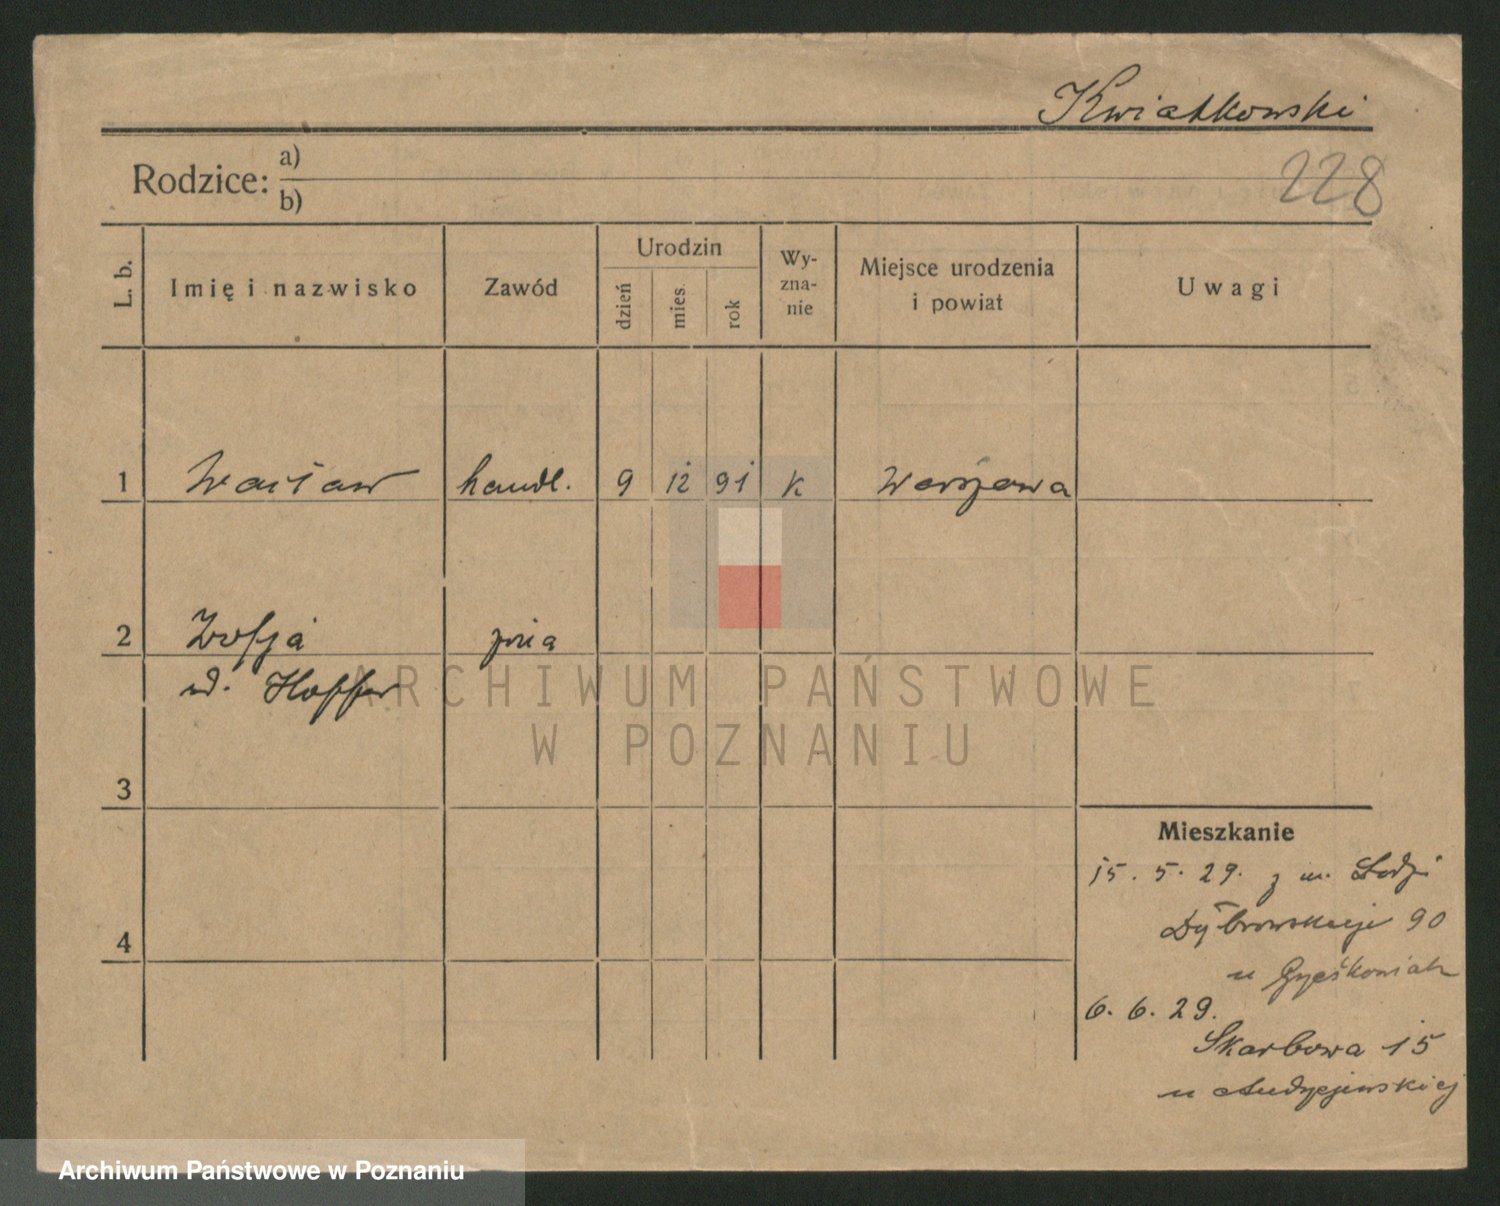 Kwiatkowski
228
Rodzice: a)
b)
L. b. Imię i nazwisko Zawód Urodzin dzień mies. rok Wyznanie Miejsce urodzenia i powiat Uwagi
1 Wacław handl. 9 12 91 k Warszawa
2 Zofja żona
ud. Hoffer
3
Mieszkanie
15. 5. 29. z m. Łodzi
4
Dąbrowskiego 90
u
6. 6. 29.
Skarbowa 15
u Andrzejewskiej
ARCHIWUM PAŃSTWOWE
W POZNANIU
Archiwum Państwowe w Poznaniu